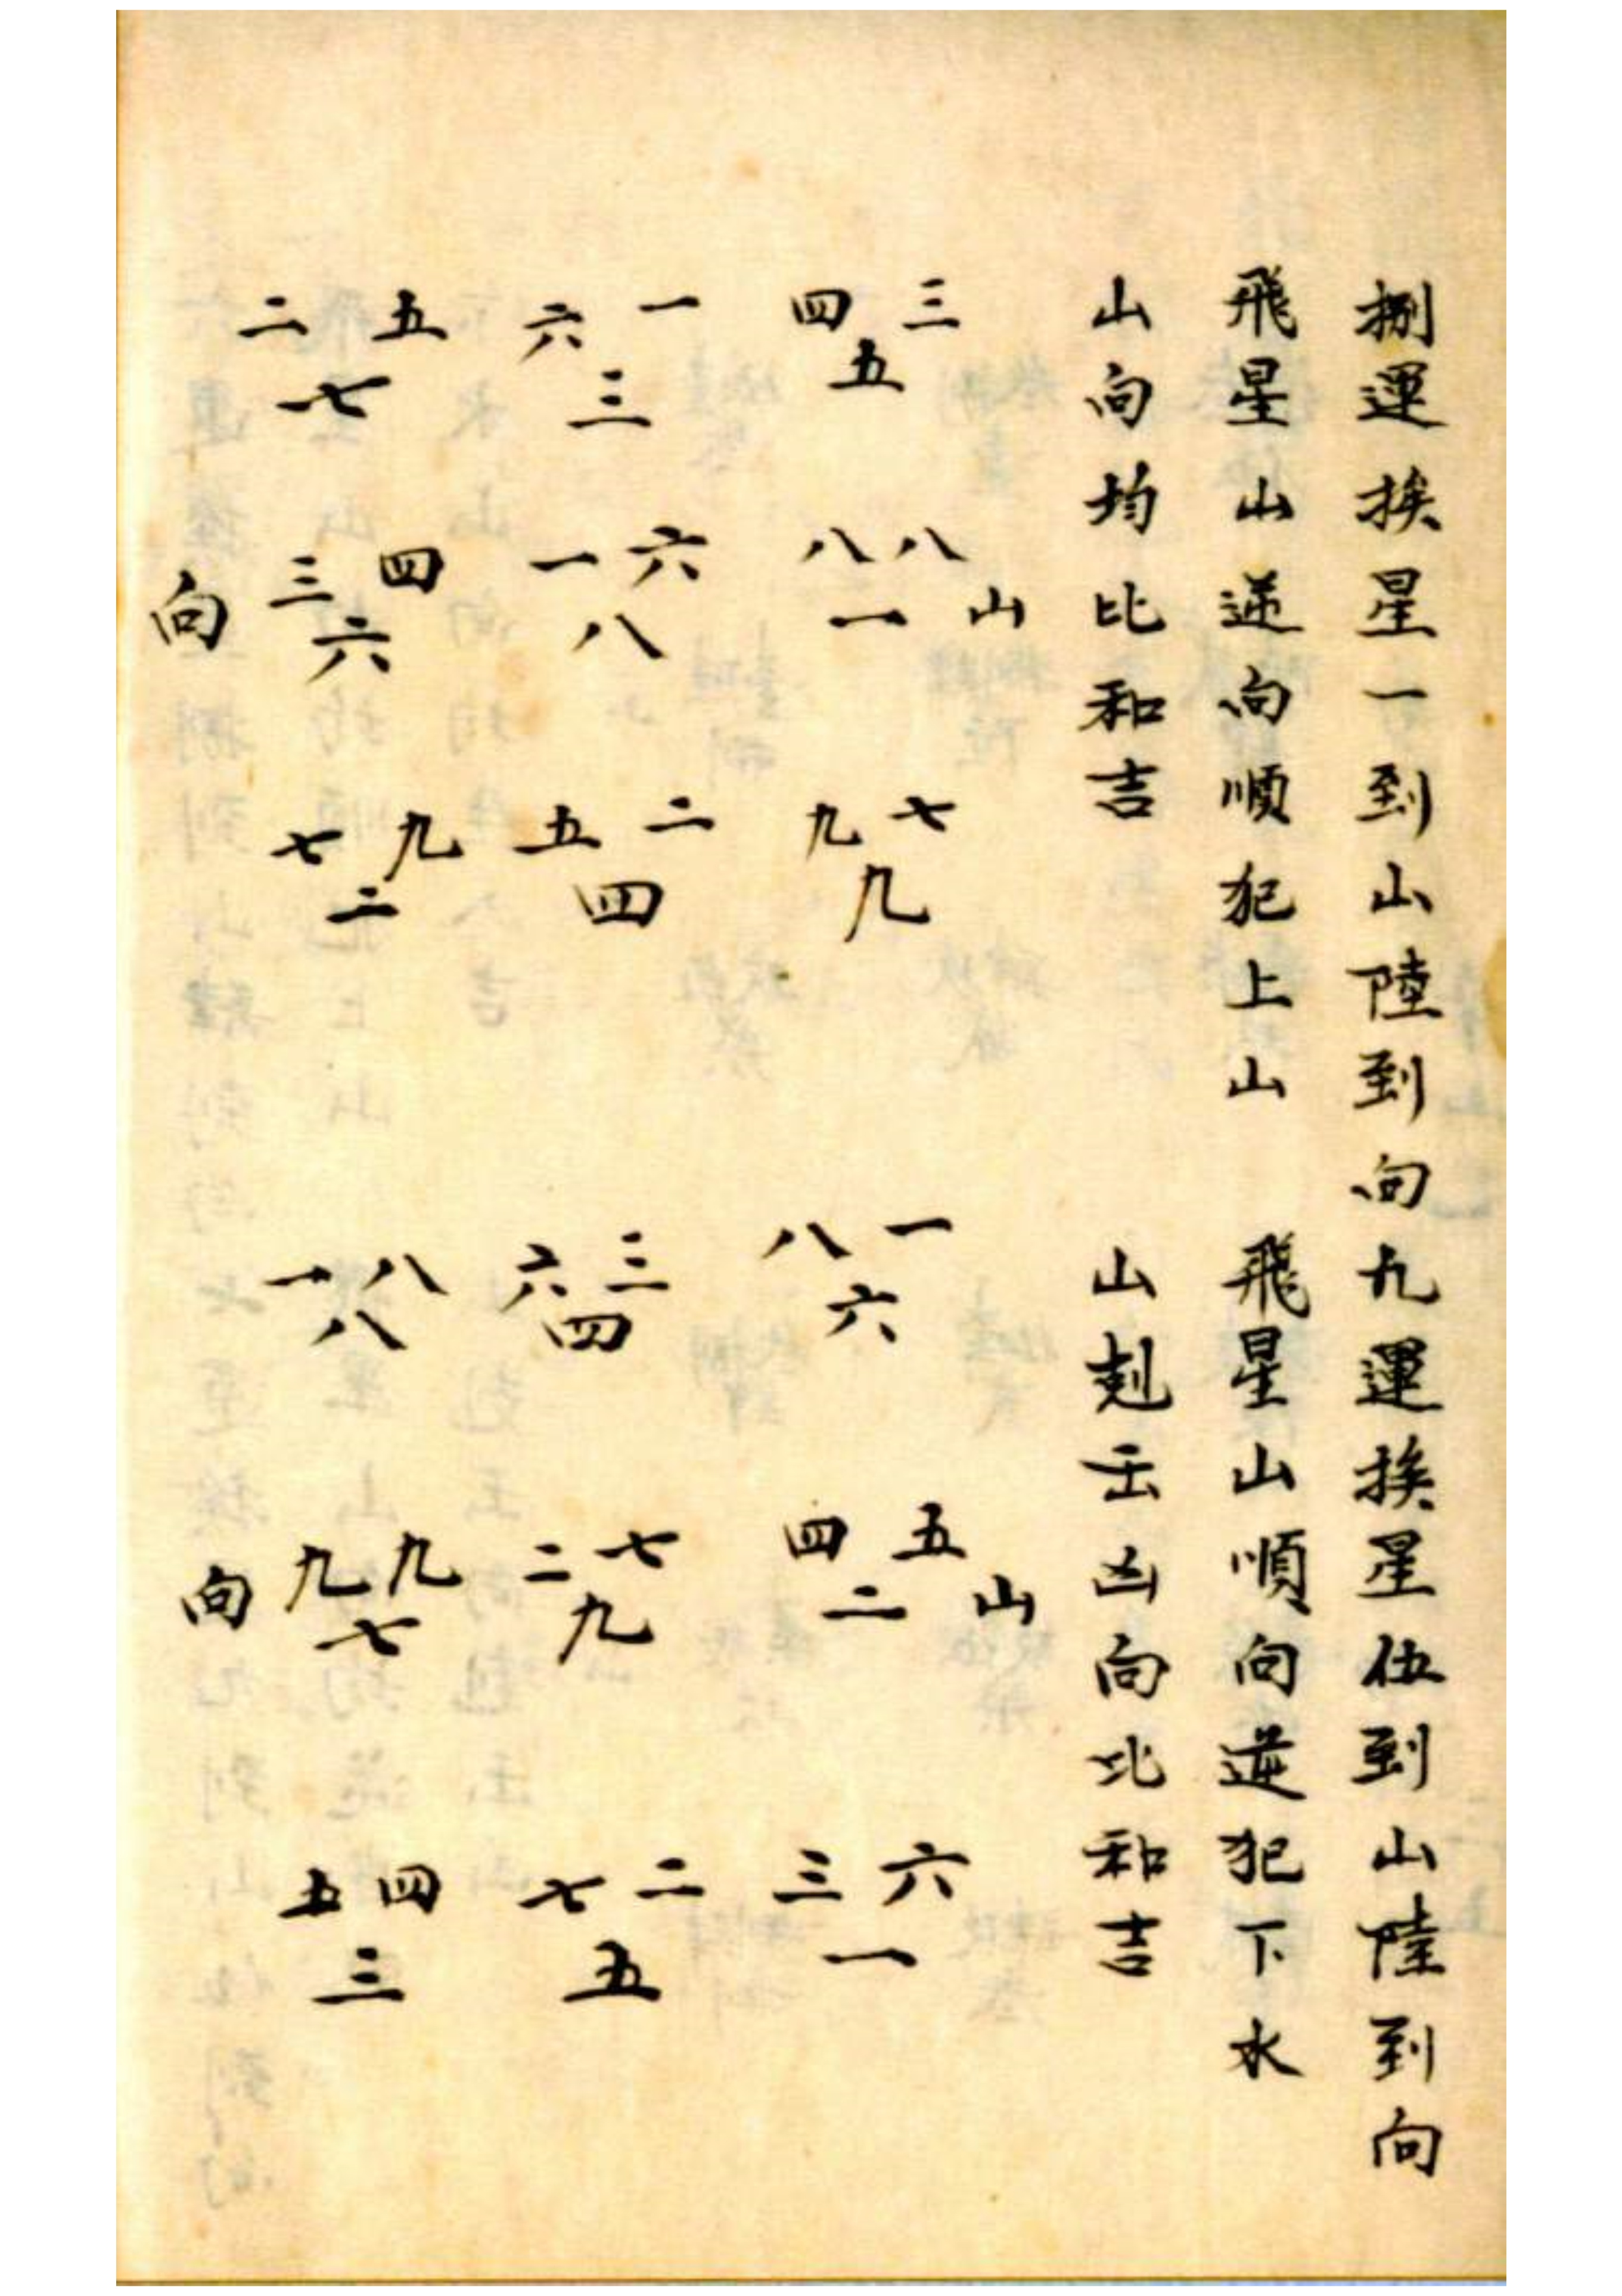 捌運挨星一到山陸到向九運挨星伍到山陸到向
飛星山逆向順犯上山　飛星山順向逆犯下水
山向均比和吉　山剋出凶向比和吉
山
三四五　八八一　七九九
一六三　六一八　二五四
五二七　四三六　九七二
向
山
一八六　五四二　六三一
三六四　七二九　二七五
八一八　九九七　四五三
向